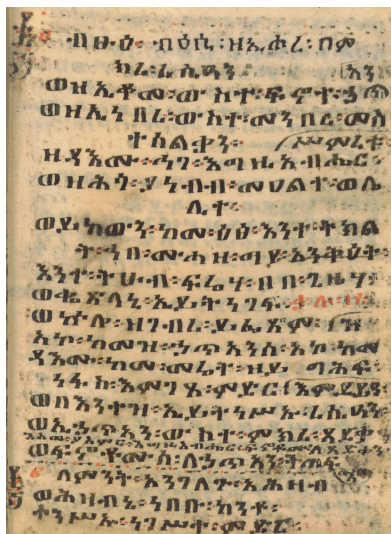 ብፁዕ፡ ብእሲ፡ ዘኢሖረ፡ በም
ክረ፡ ረሲዓን፡
ወዘኢቆመ፡ ውስተ፡ ፍኖተ፡ ኃ
ወዘኢነበረ፡ ውስተ፡ መንበረ፡ መስ
ተሳልቃን፡ ሥምረቱ፡
ዘዳእሙ፡ ሕገ፡ እግዚአብሔር፡
ወዘሕጎ፡ ያነብብ፡ መዐልተ፡ ወሌ
ሊተ፡
ወይከውን፡ ከመ፡ ዕፅ፡ እንተ፡ ትክል
ት፡ ኀበ፡ ሙሓዘ፡ ማይ፡
እንተ፡ ትሁብ፡ ፍሬሃ፡ በበ፡ ጊዜሃ፡
ወቈጽላኒ፡ ኢይትነገፍ፡
ወኵሎ፡ ዘገብረ፡ ይፌጽም፡
አኮ፡ ከመዝ፡ ኃጥአንሰ፡ አኮ፡ ከመ
ዳእሙ፡ ከመ፡ መሬት፡ ዘይግሕፍ፡
ነፋስ፡ እምገጸ፡ ምድር፡
ወበእንተዝ፡ ኢይትነሥኡ፡ ረሲዓን፡
ወኢኃጥአን፡ ውስተ፡ ምክረ፡ ጻድቃን
እስመ፡ ያአምር፡ እግዚአብሔር፡ ፍኖቶሙ፡ ለጻድቃን፡
ወፍኖቶሙሰ፡ ለኃጥአን፡ ትጠፍ
ለምንት፡ አንገለጉ፡ አሕዛብ
ወሕዝብኒ፡ ነበቡ፡ ከንቶ፡
ተንሥኡ፡ ነገሥተ፡ ምድር፡